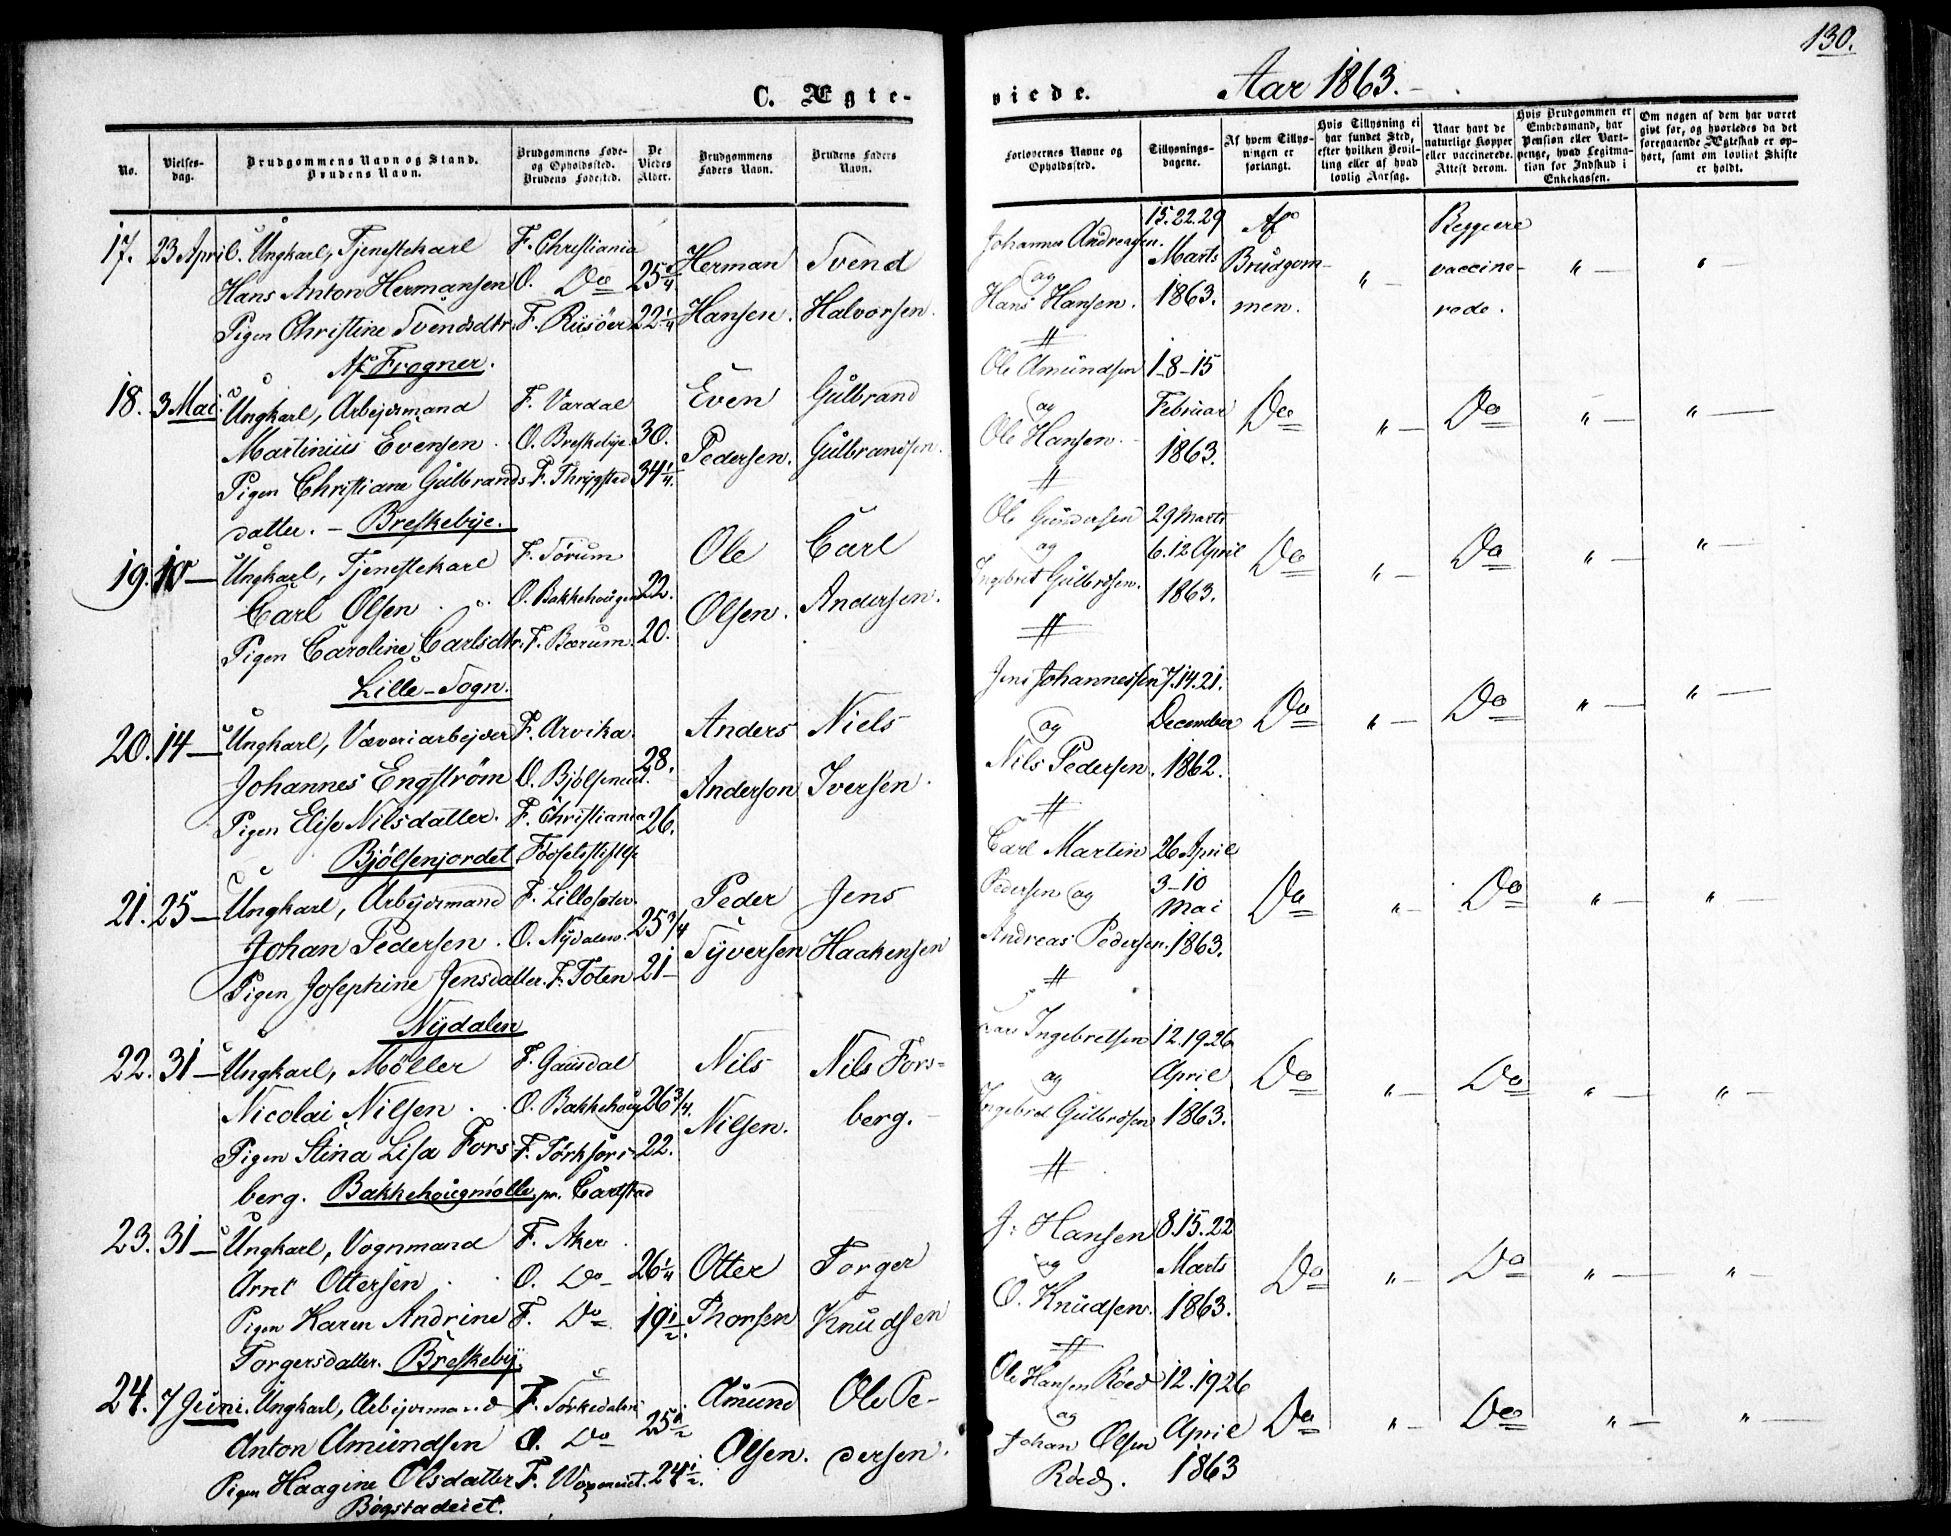 130.
C. Ægte-
viede.
Aar 1863.
No.
Vielses-
dag.
Brudgommens Navn og Stand.
Brudens Navn.
Brudgommens Føde-
og Opholdssted.
Brudens Fødested.
De
Viedes
Alder.
Brudgommens
Faders Navn.
Brudens Faders
Navn.
Forlovernes Navne og
Opholdssted.
Tillysnings-
dagene.
Af hvem Tillys-
ningen er
forlangt.
Hvis Tillysning ei
har fundet Sted,
efter hvilken Bevil-
ling eller af hvad
lovlig Aarsag.
Naar havt de
naturlige Kopper
eller vaccinerede.
Attest derom.
Hvis Brudgommen er
Embedsmand, har
Pension eller Vart-
penge, hvad Legitima-
tion for Indskud i
Enkekassen.
Om nogen af dem har været
givt før, og hvorledes da det
foregaaende Ægteskab er op-
hørt, samt om lovligt Skifte
er holdt.
17. 23 April. Ungkarl, Tjenestekarl F. Christiania
Hans Anton Hermansen O. Do 25 1/4 Herman Svend
Pigen Christine Svendsdtr. F. Riisöer 22 1/4 Hansen. Halvorsen.
Af Frogner.
Johannes Andreasen. 15.22.29 Af Beggere
og Marts Brudgom- " vaccine- " "
Hans Hansen. 1863. men. rede.
18. 3 Mai. Ungkarl, Arbejdsmand F. Vardal Even Gulbrand
Martinius Evensen. O. Breskebye 30. Pedersen. Gulbrandsen.
Pigen Christiane Gulbrands- F. Thrygstad 34 1/4
datter. – Breskebye.
Ole Amundsen 1-8-15
og Februar Do " Do " "
Ole Hansen. 1863.
19. 10 – Ungkarl, Tjenestekarl F. Sörum Ole Carl
Carl Olsen O. Bakkehougen 22. Olsen. Andersen.
Pigen Caroline Carlsdtr. F. Bærum. 20.
Lille-Sogn.
Ole Gundersen 29 Marts
og 6.12 April Do " Do " "
Ingebret Gulbrdsen. 1863.
20. 14 – Ungkarl, Væveriarbejder F. Arvika. Anders Niels
Johannes Engström O. Bjölsenjord. 28. Anderson Iversen.
Pigen Elise Nilsdatter. F. Christiania 26.
Bjölsenjordet Födselsstiftelse
Jens Johannessen 7.14.21.
og December Do " Do " "
Nils Pedersen. 1862.
21. 25 – Ungkarl, Arbejdsmand F. Peder Jens
Johan Pedersen. O. Nydalen. 25 3/4 Syversen Haakensen
Pigen Josephine Jensdatter. F. Toten 21 –
Nydalen
Carl Martin 26 April
Pedersen og 3-10 Mai Do " Do " "
Andreas Pedersen. 1863.
22. 31 – Ungkarl, Möller F. Gausdal Nils Nils Fors=
Nicolai Nilsen O. Bakkehoug 26 3/4. Nilsen. berg.
Pigen Stina Lisa Fors- F. 22.
berg. Bakkehougmölle, pr. Carlstad
Lars Ingebretsen 12.19.26
og April Do " Do " "
Ingebret Gulbrdsen 1863.
23. 31 – Ungkarl, Vognmand F. Aker. Otter Torger
Arnt Ottersen O. Do 26 1/4 Thorsen Knudsen
Pigen Karen Andrine F. Do 19 1/2.
Torgersdatter. Breskeby.
J: Hansen 8.15.22
og Marts Do " Do " "
O. Knudsen. 1863.
24. 7 Juni. Ungkarl, Arbejdsmand F. Sörkedalen Amund Ole Pe-
Anton Amundsen O. Do 25 1/2 Olsen. dersen.
Pigen Haagine Olsdatter F. 24 1/2.
Bogstadeiet.
Ole Hansen Röed 12.19 26
og April Do " Do " "
Johan Olsen 1863
Röed.